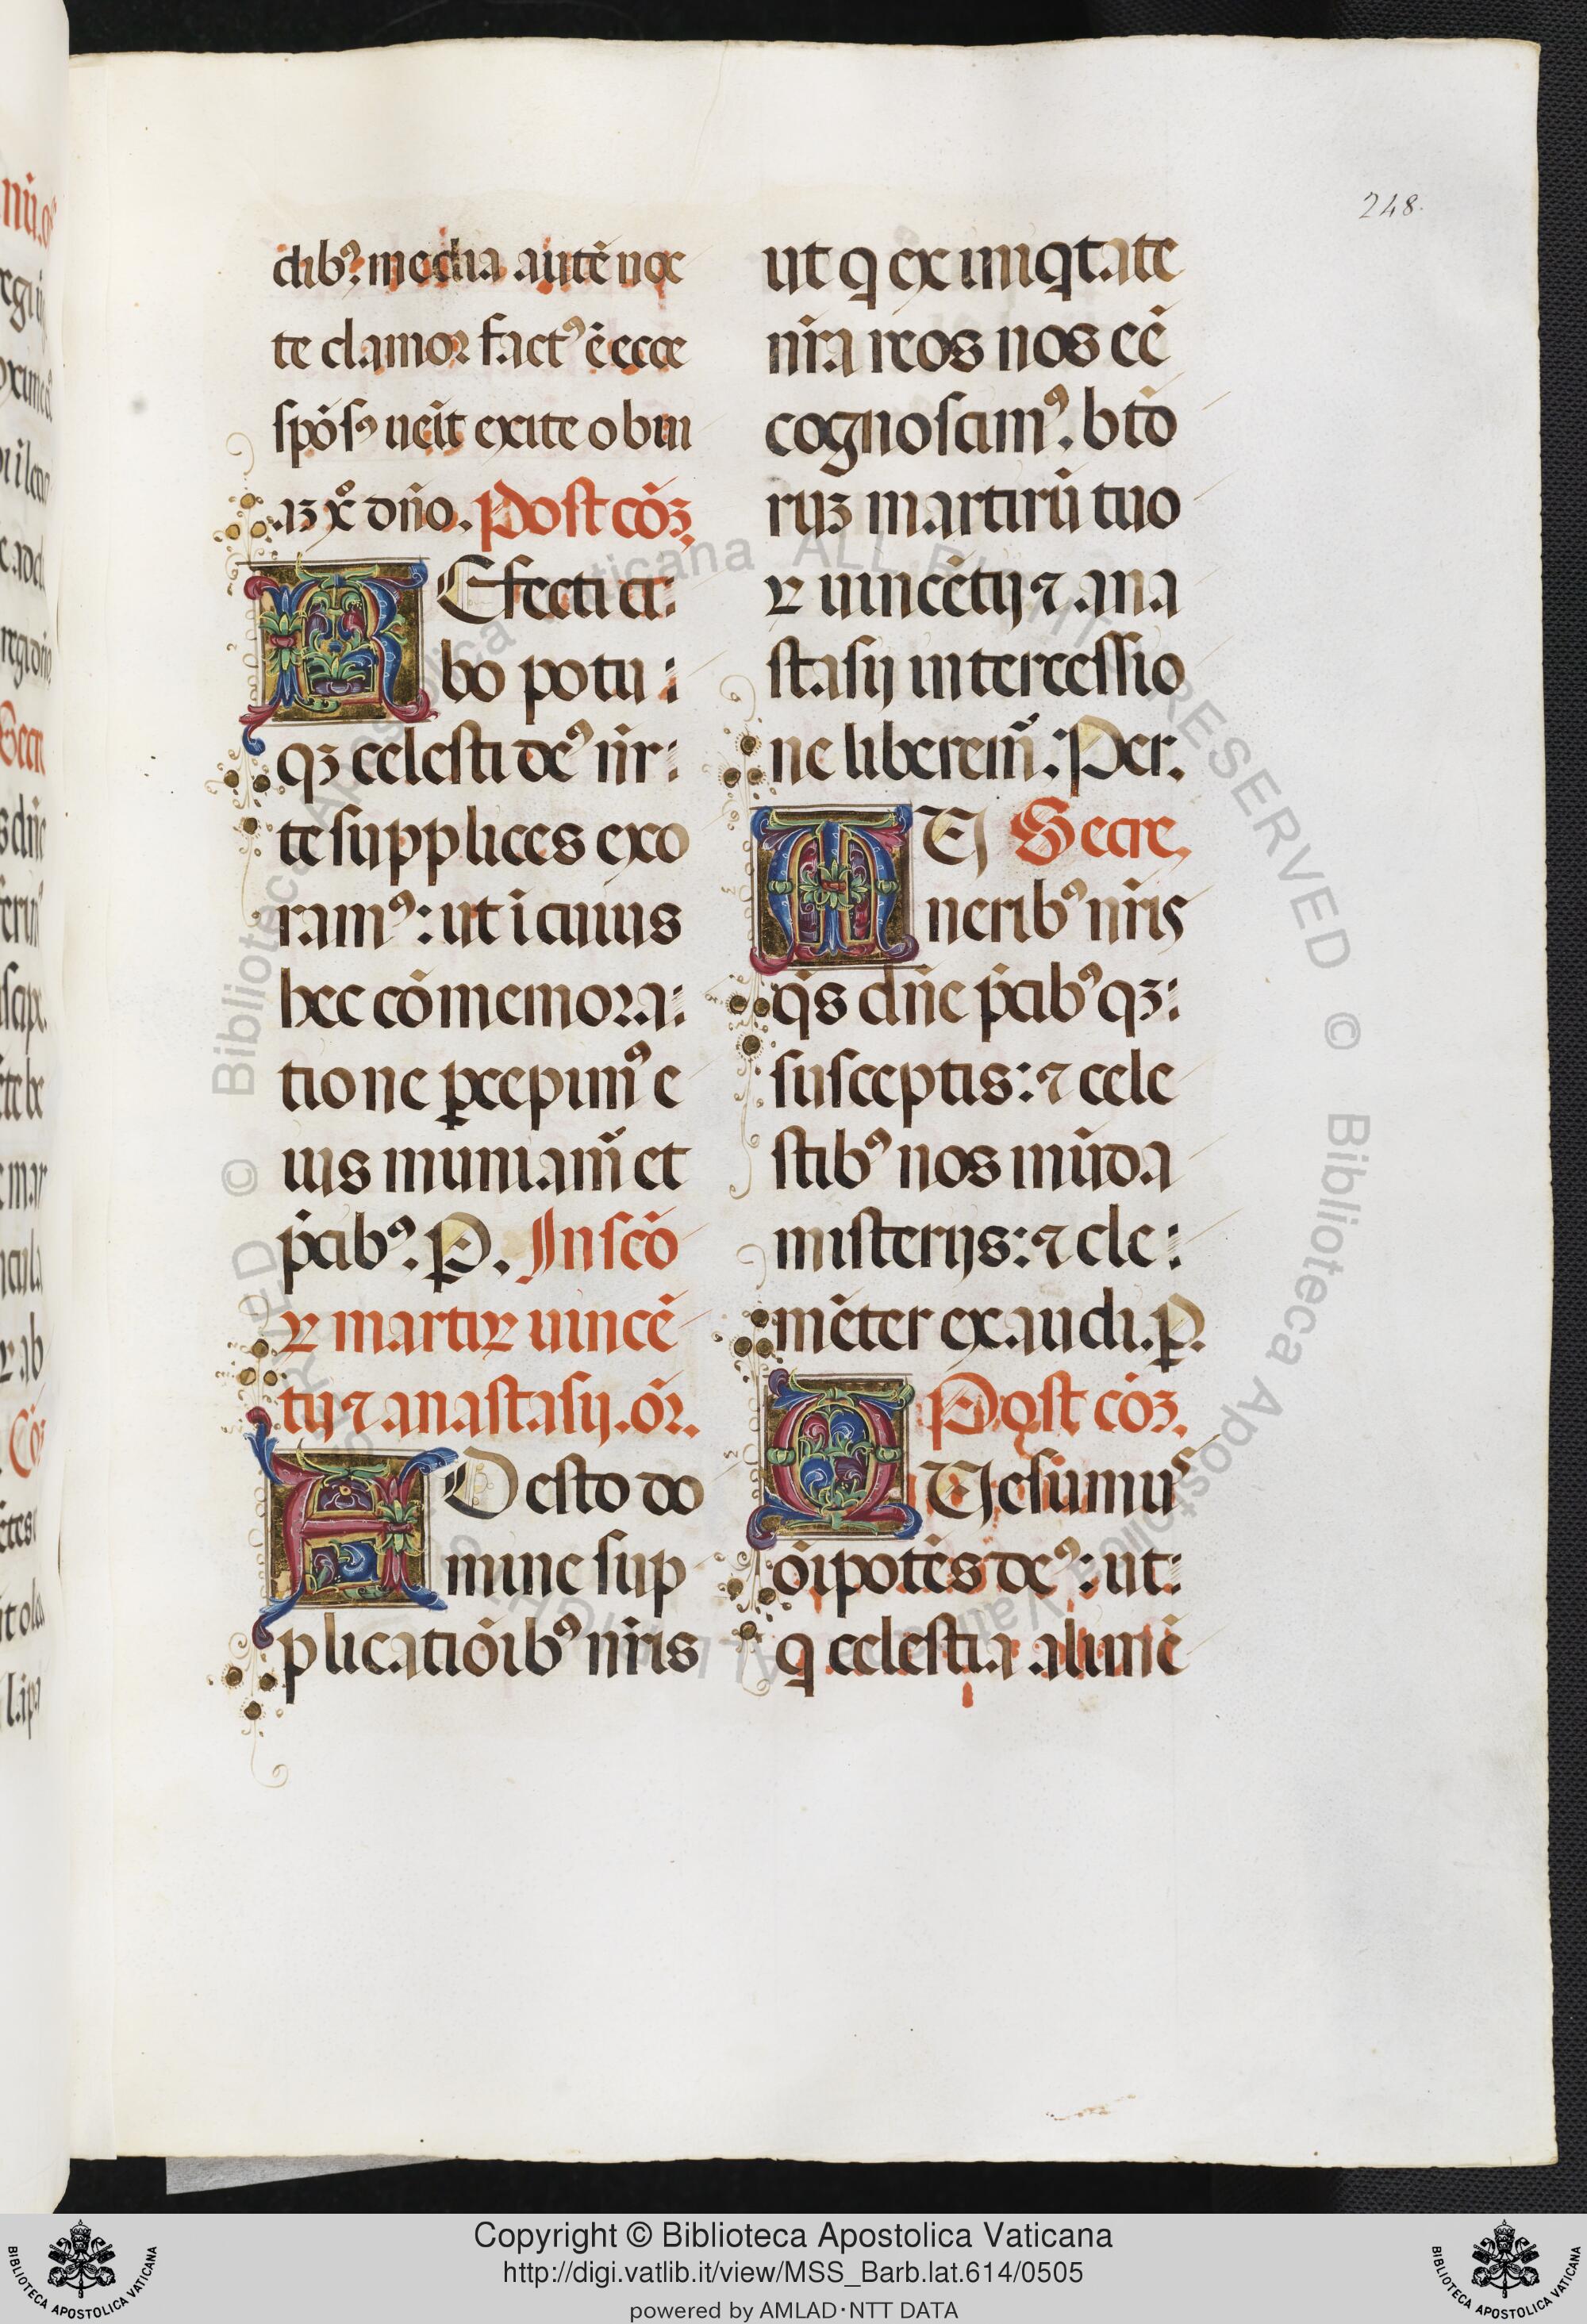 248.
dibꝰ. media autē noc
te clamor factꝰ ē ecce
spōsꝰ ueīt exite obui
aꝫ xº dn̄o. Post cōꝫ
REfecti ci:
bo potu:
qꝫ celesti deꝰ nr̄:
te supplices exo
ramꝰ: ut ī cuius
hec cōmemora:
tione ꝑcepimꝰ e
ius muniam̄ et
p̄cibꝰ. P. In scō
ꝝ martiꝝ uincē
tij ⁊ anastasij. or̄.
ADesto do
mine sup
plicatiōibꝰ nr̄is
ut q ex iniqtate
nr̄a reos nos eē
cognoscimꝰ. bto
ruꝫ martirū tuo
ꝝ uincētij ⁊ ana
stasij intercessio
ne liberem̄. Per.
MU Secre
neribꝰ nr̄is
q̄s dn̄e p̄cibꝰqꝫ:
susceptis: ⁊ cele
stibꝰ nos mūda
misterijs: ⁊ cle:
mēter exaudi. P.
Post cōꝫ.
QUesumus
oīpotēs deꝰ: ut:
q celestia alimē
Copyright © Biblioteca Apostolica Vaticana
http://digi.vatlib.it/view/MSS_Barb.lat.614/0505
powered by AMLAD·NTT DATA
BIBLIOTECA APOSTOLICA VATICANA
BIBLIOTECA APOSTOLICA VATICANA